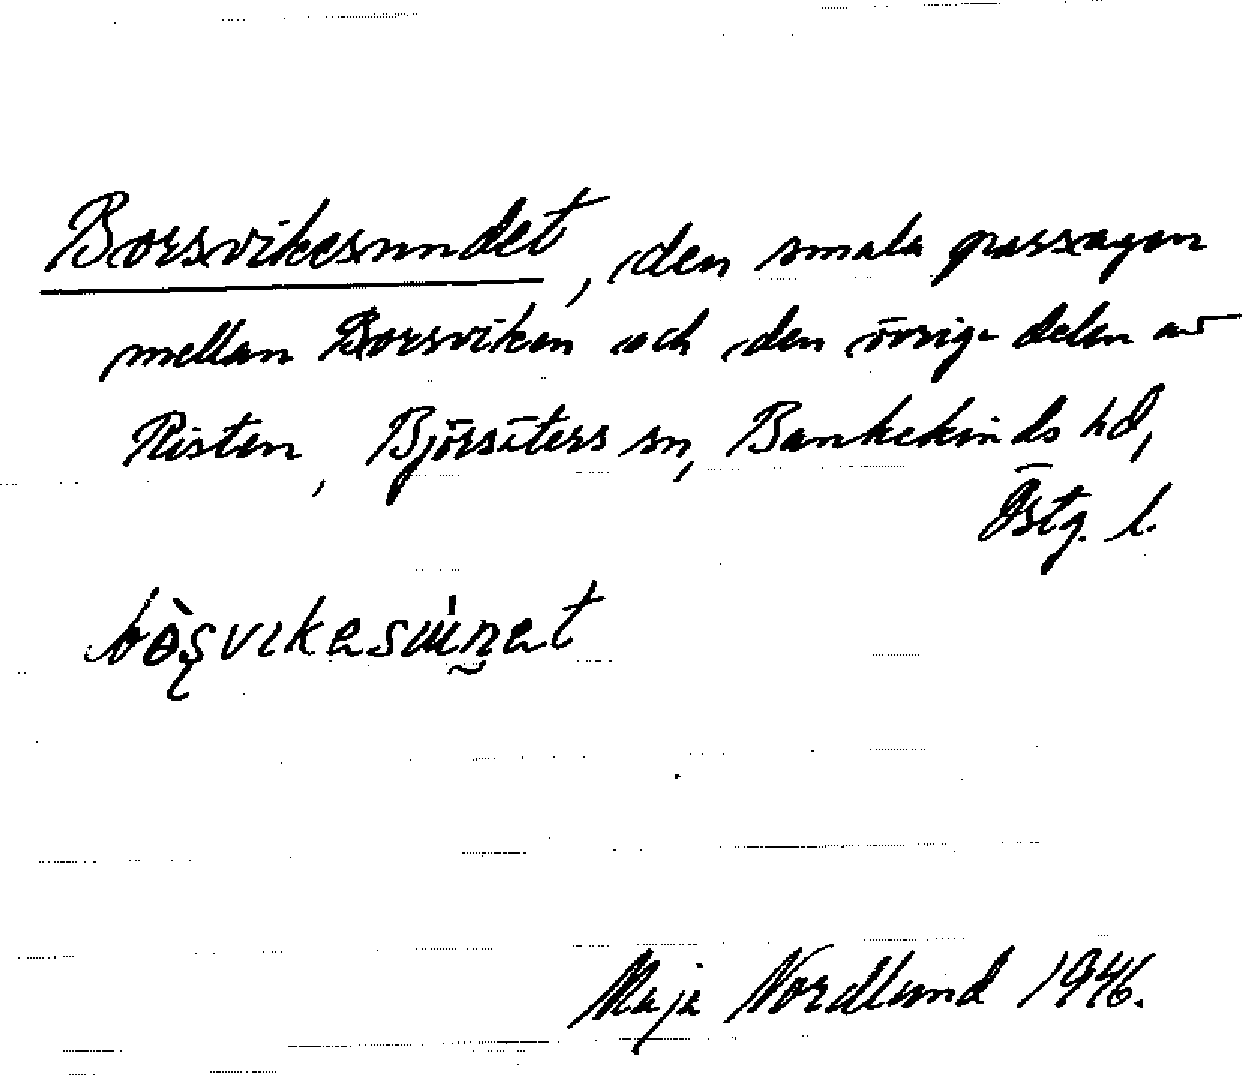 Borsvikesundet, den smala passagen
mellan Borsviken och den övriga delen av
Risten, Björsäters sn, Bankekinds hd,
Östg. l.
Maja Nordlund 1946.